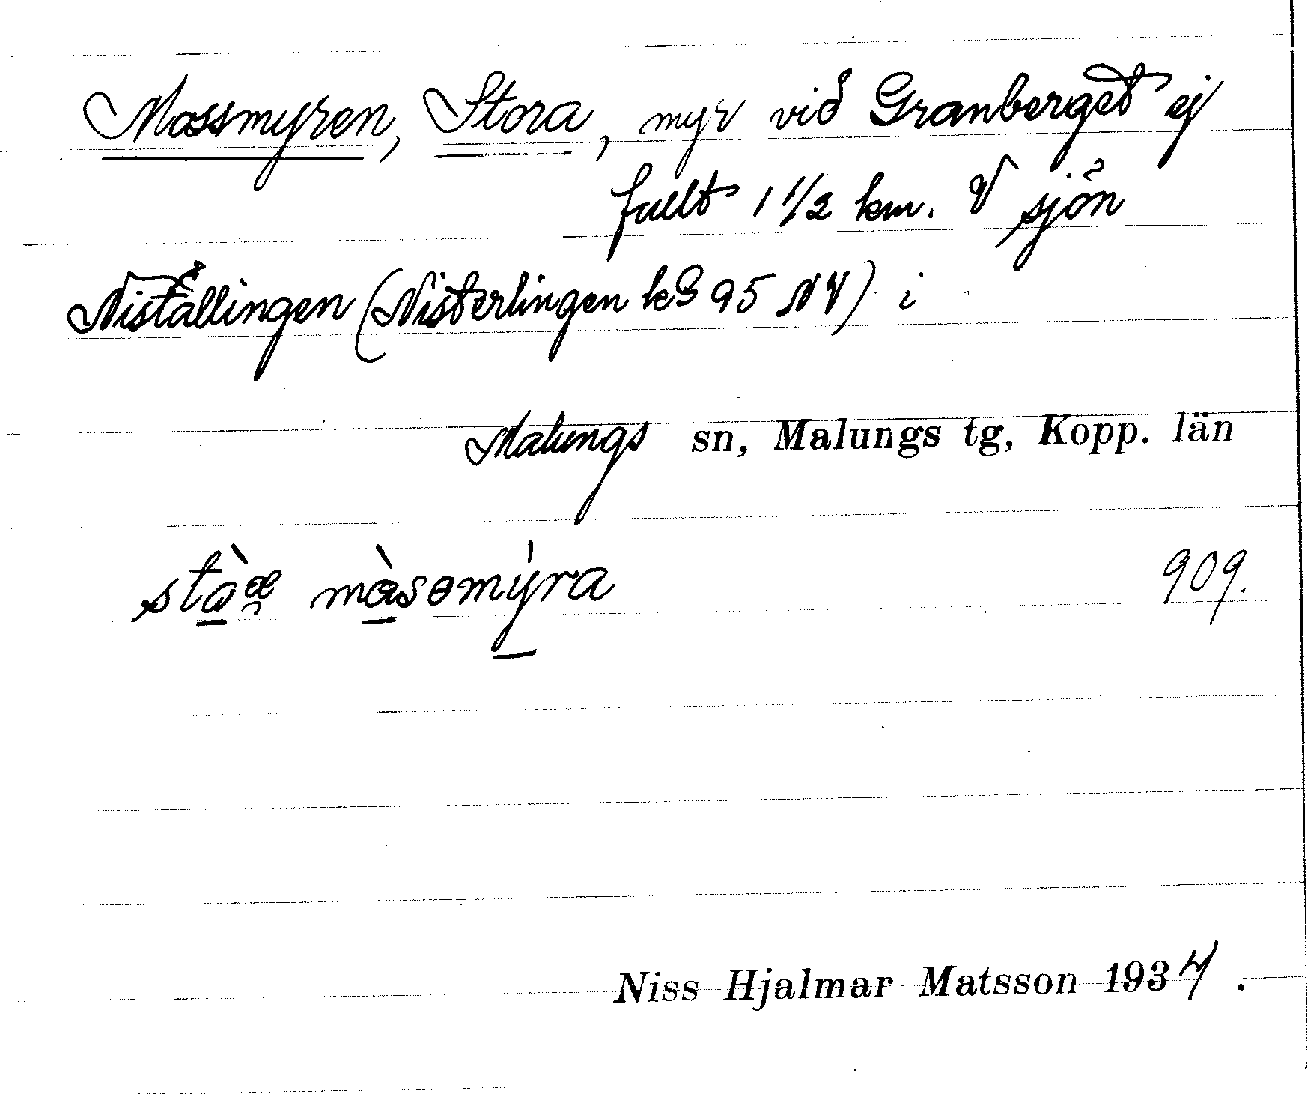 Mossmyren, Stora, myr vid Granberget ej
fullt 1 1/2 km. V sjön
Niställingen (Nisterlingen kG 95 NV) i
Malungs sn, Malungs tg, Kopp. län
909.
Niss Hjalmar Matsson 1934.